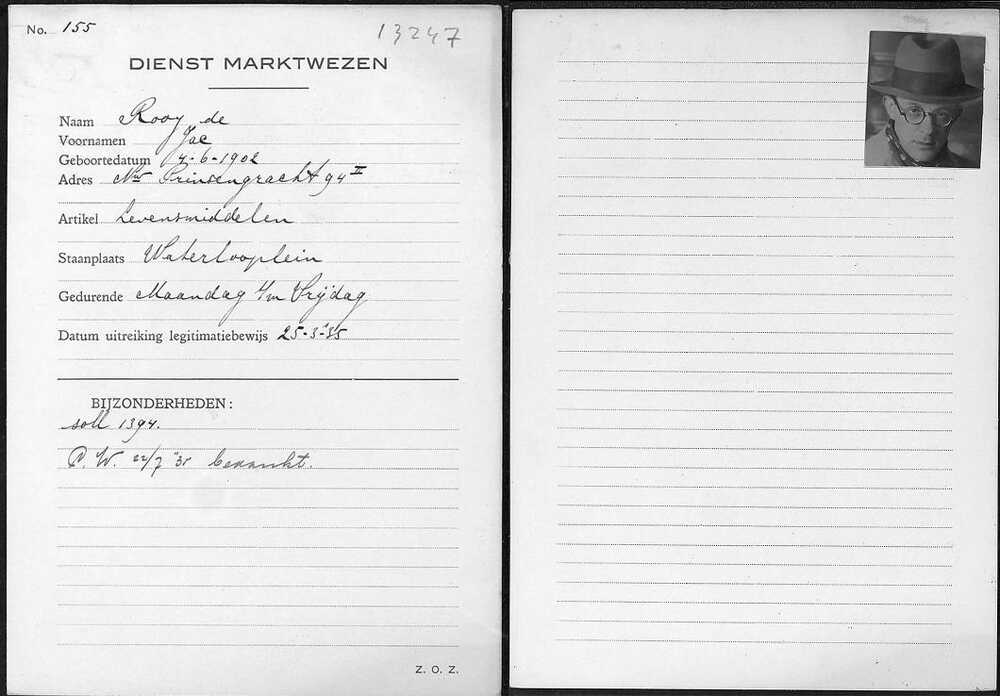 No. 155
13247
DIENST MARKTWEZEN
Naam Rooy de
Voornamen Jac
Geboortedatum 4-6-1902
Adres Nwe Prinsengracht 94 II
Artikel Levensmiddelen
Staanplaats Waterlooplein
Gedurende Maandag t/m Vrijdag
Datum uitreiking legitimatiebewijs 25-3-'35
BIJZONDERHEDEN:
soll 1394.
P. W. 22/7 '35
Z. O. Z.